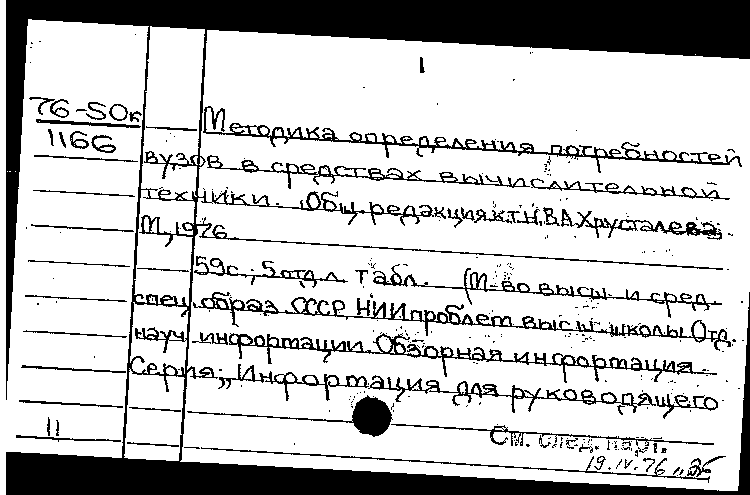 1
76-5Ок
1166
Методика определения потребностей
вузов в средствах вычислительной
техники. Общ. редакция к.т.н. В.А. Хрусталева.
М., 1976
59с., 5 отд. л. табл. (М-во высш. и сред.
спец. образ. СССР. НИИ проблем высш. школы. Отд.
науч. информации. Обзорная информация.
Серия: „Информация для руководящего
11
См. след. карт.
19.IV.76